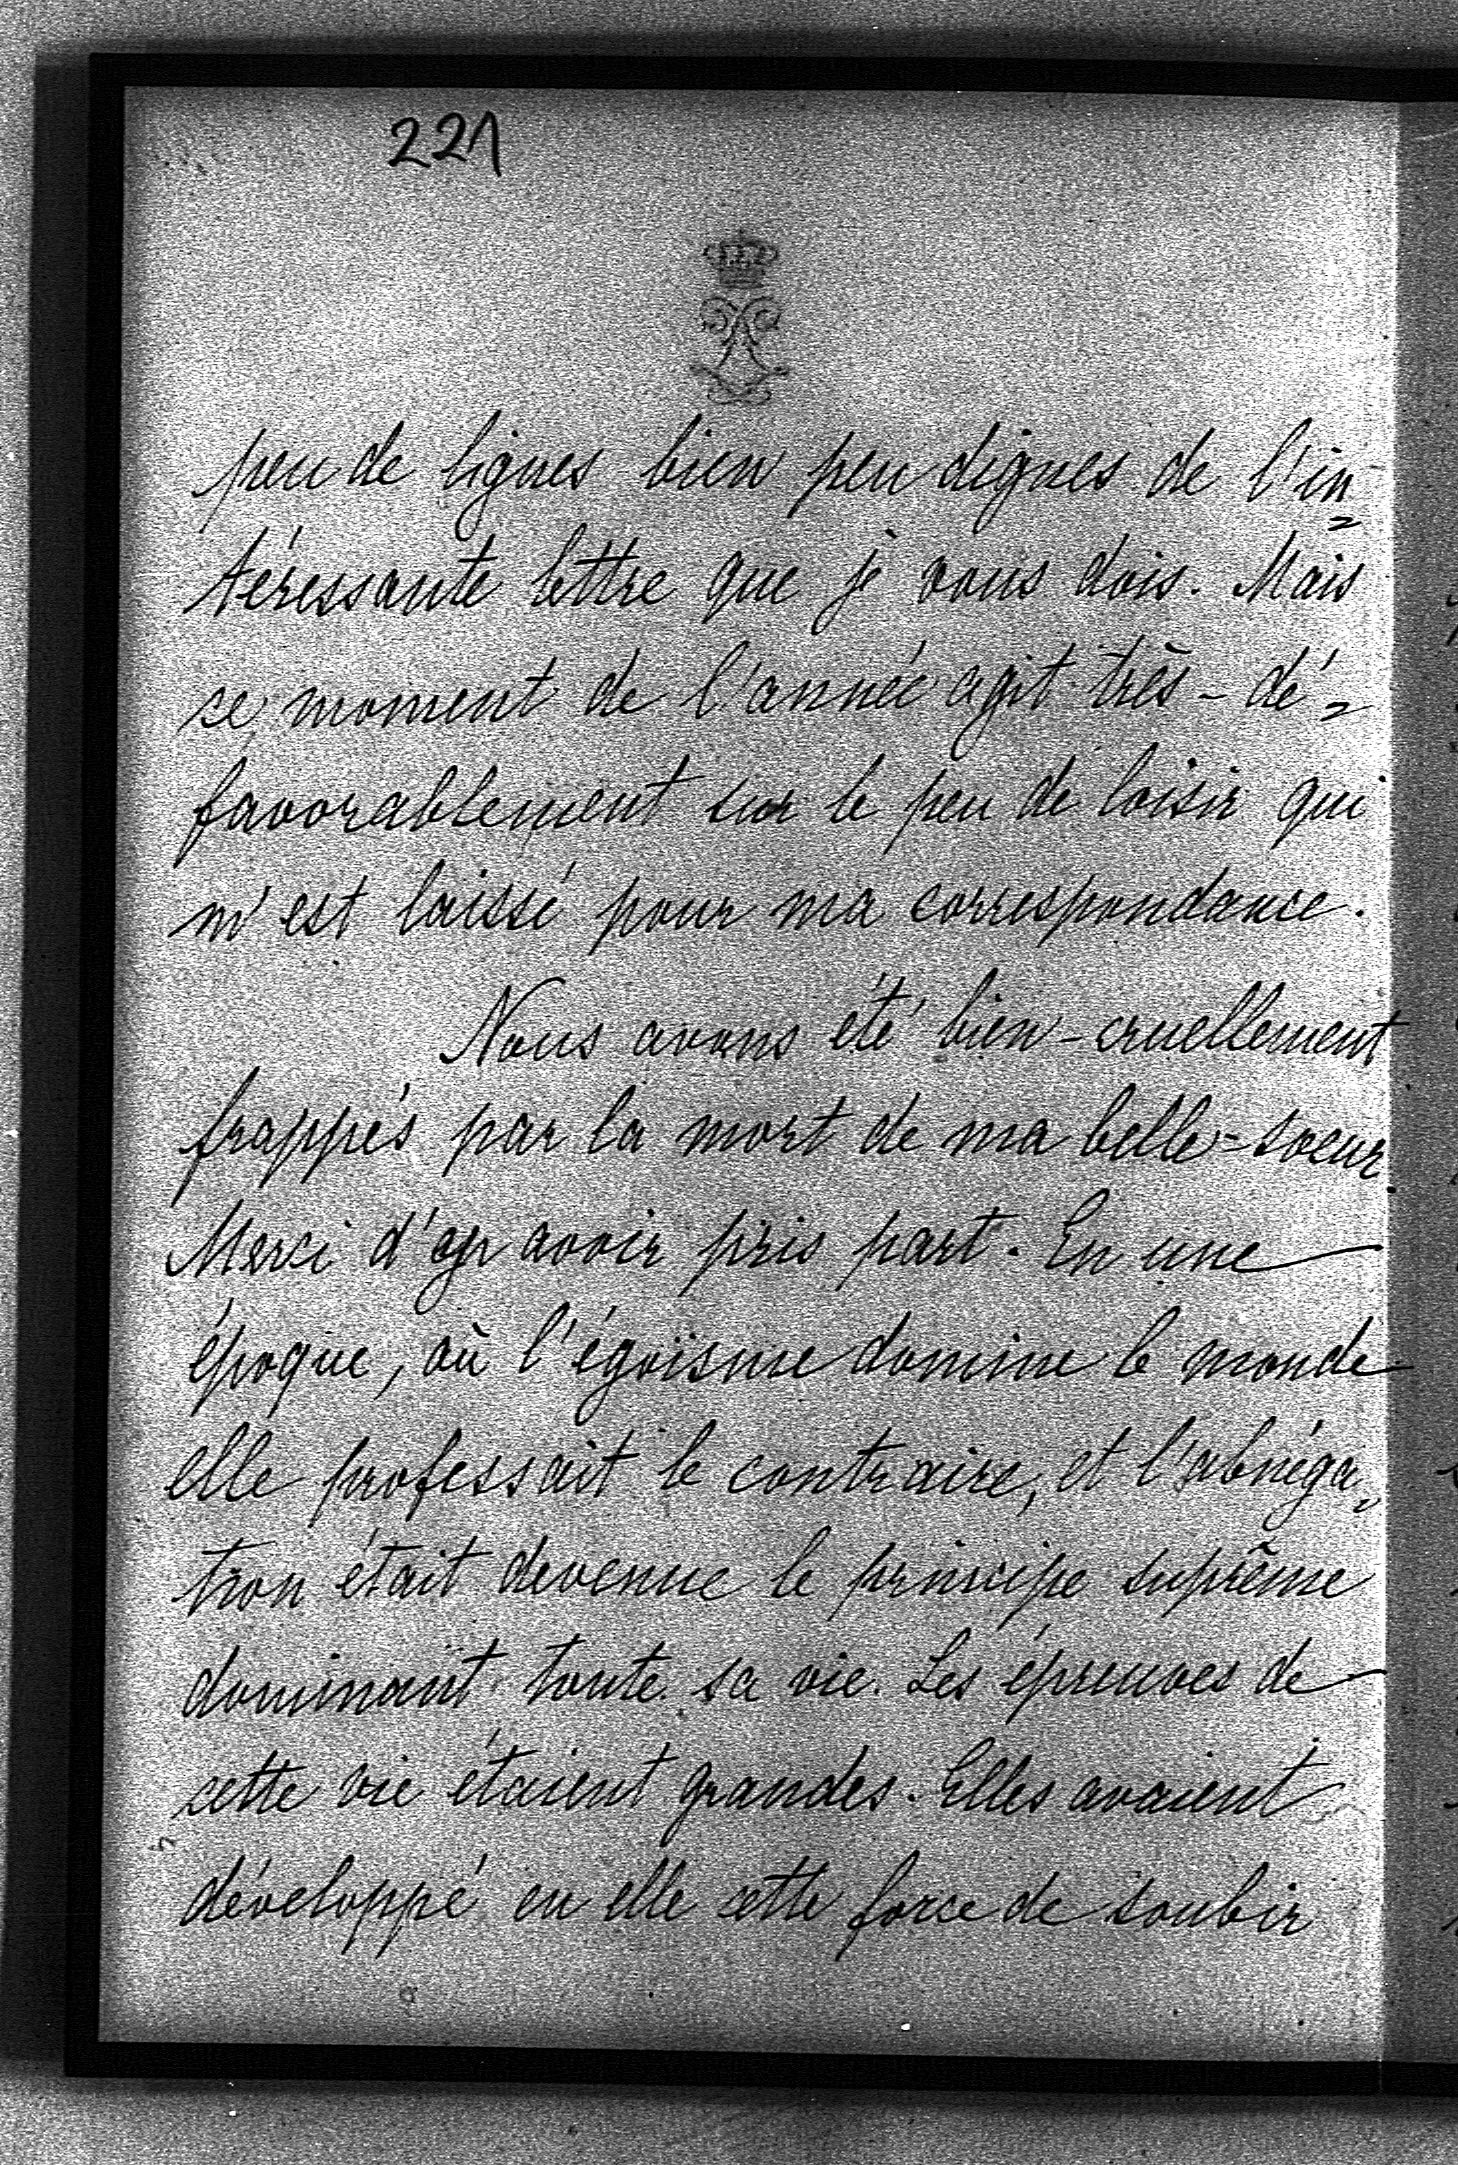 221
peu de lignes bien peu dignes de l'in=
téressante lettre que je vous dois. Mais
ce moment de l'année agit très-dé=
favorablement sur le peu de loisir qui
m'est laissé pour ma correspondance.
Nous avons été bien-cruellement
frappés par la mort de ma belle-soeur.
Merci d'y avoir pris part. En une
époque, où l'égoïsme domine le monde
elle professait le contraire, et l'abnéga=
tion était devenue le principe suprême
dominant toute sa vie. Les épreuves de
cette vie étaient grandes. Elles avaient
développé en elle cette force de soubir